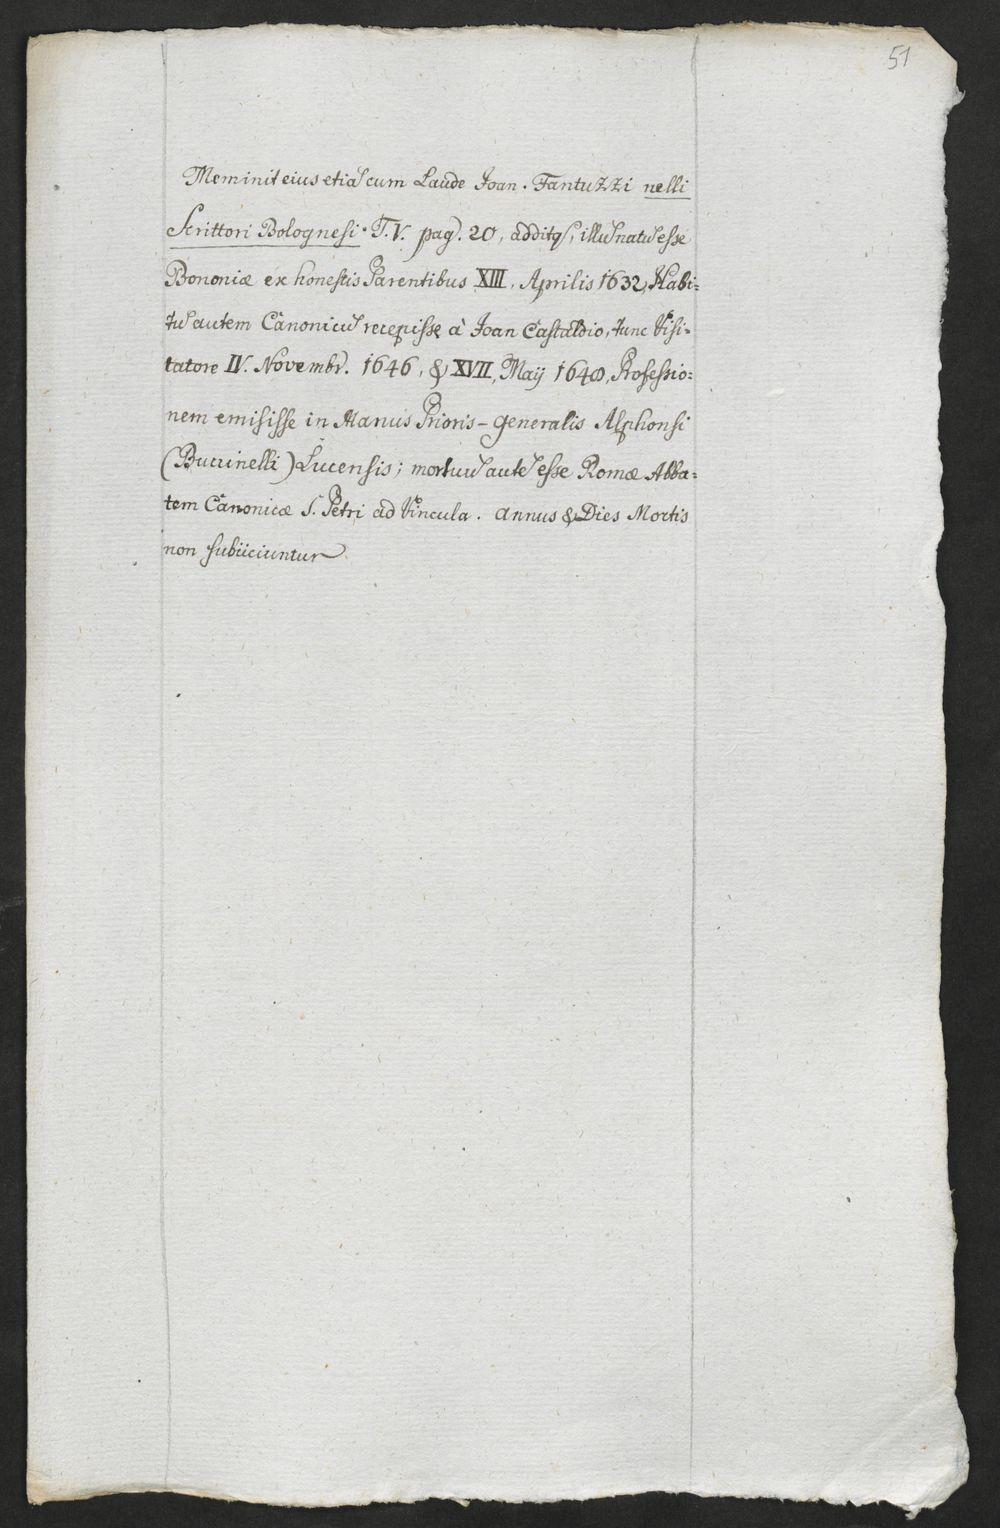 51
Meminit eius etiã cum Laude Joan. Fantuzzi nelli
Scrittori Bolognesi. T. V. pag. 20, additq, illũ natũ esse
Bononiæ ex honestis Parentibus XIII. Aprilis 1632, Habi=
tũ autem Canonicũ recepisse à Joan Castaldio, tunc Visi=
tatore IV. Novembr. 1646, & XVII, Maÿ 1648, Professio=
nem emisisse in Manus Prioris-generalis Alphonsi
(Bucinelli) Lucensis; mortuũ autẽ esse Romæ Abba=
tem Canonicæ S. Petri ad Vincula. annus & Dies Mortis
non subiiciuntur